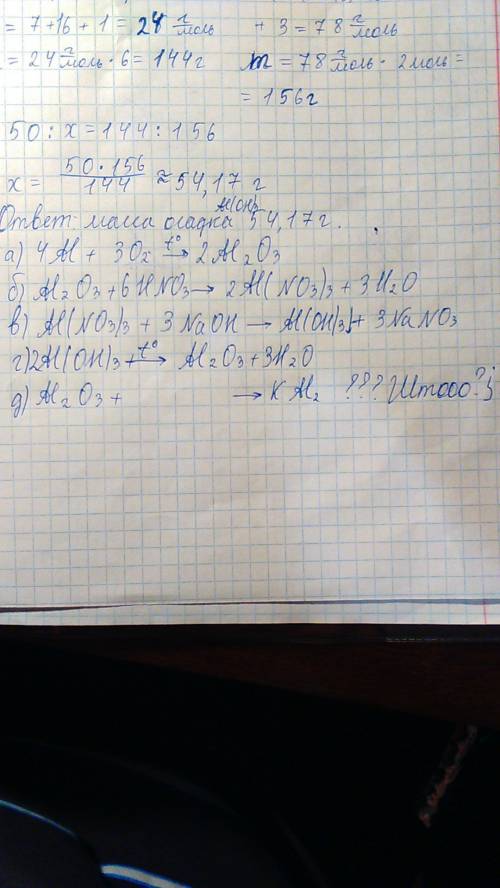 = 7+16+1 = 24 г/моль + 3 = 78 г/моль
= 24 г/моль · 6 = 144 г m = 78 г/моль · 2 моль =
= 156 г
50 : x = 144 : 156
x = 50·156/144 ≈ 54,17 г
Ответ: масса осадка Al(OH)3 54,17 г.
а) 4Al + 3O2 t°→ 2Al2O3
б) Al2O3 + 6HNO3 → 2Al(NO3)3 + 3H2O
в) Al(NO3)3 + 3NaOH → Al(OH)3↓ + 3NaNO3
г) 2Al(OH)3 t°→ Al2O3 + 3H2O
д) Al2O3 + → KAl2 ??? Штооо?¿